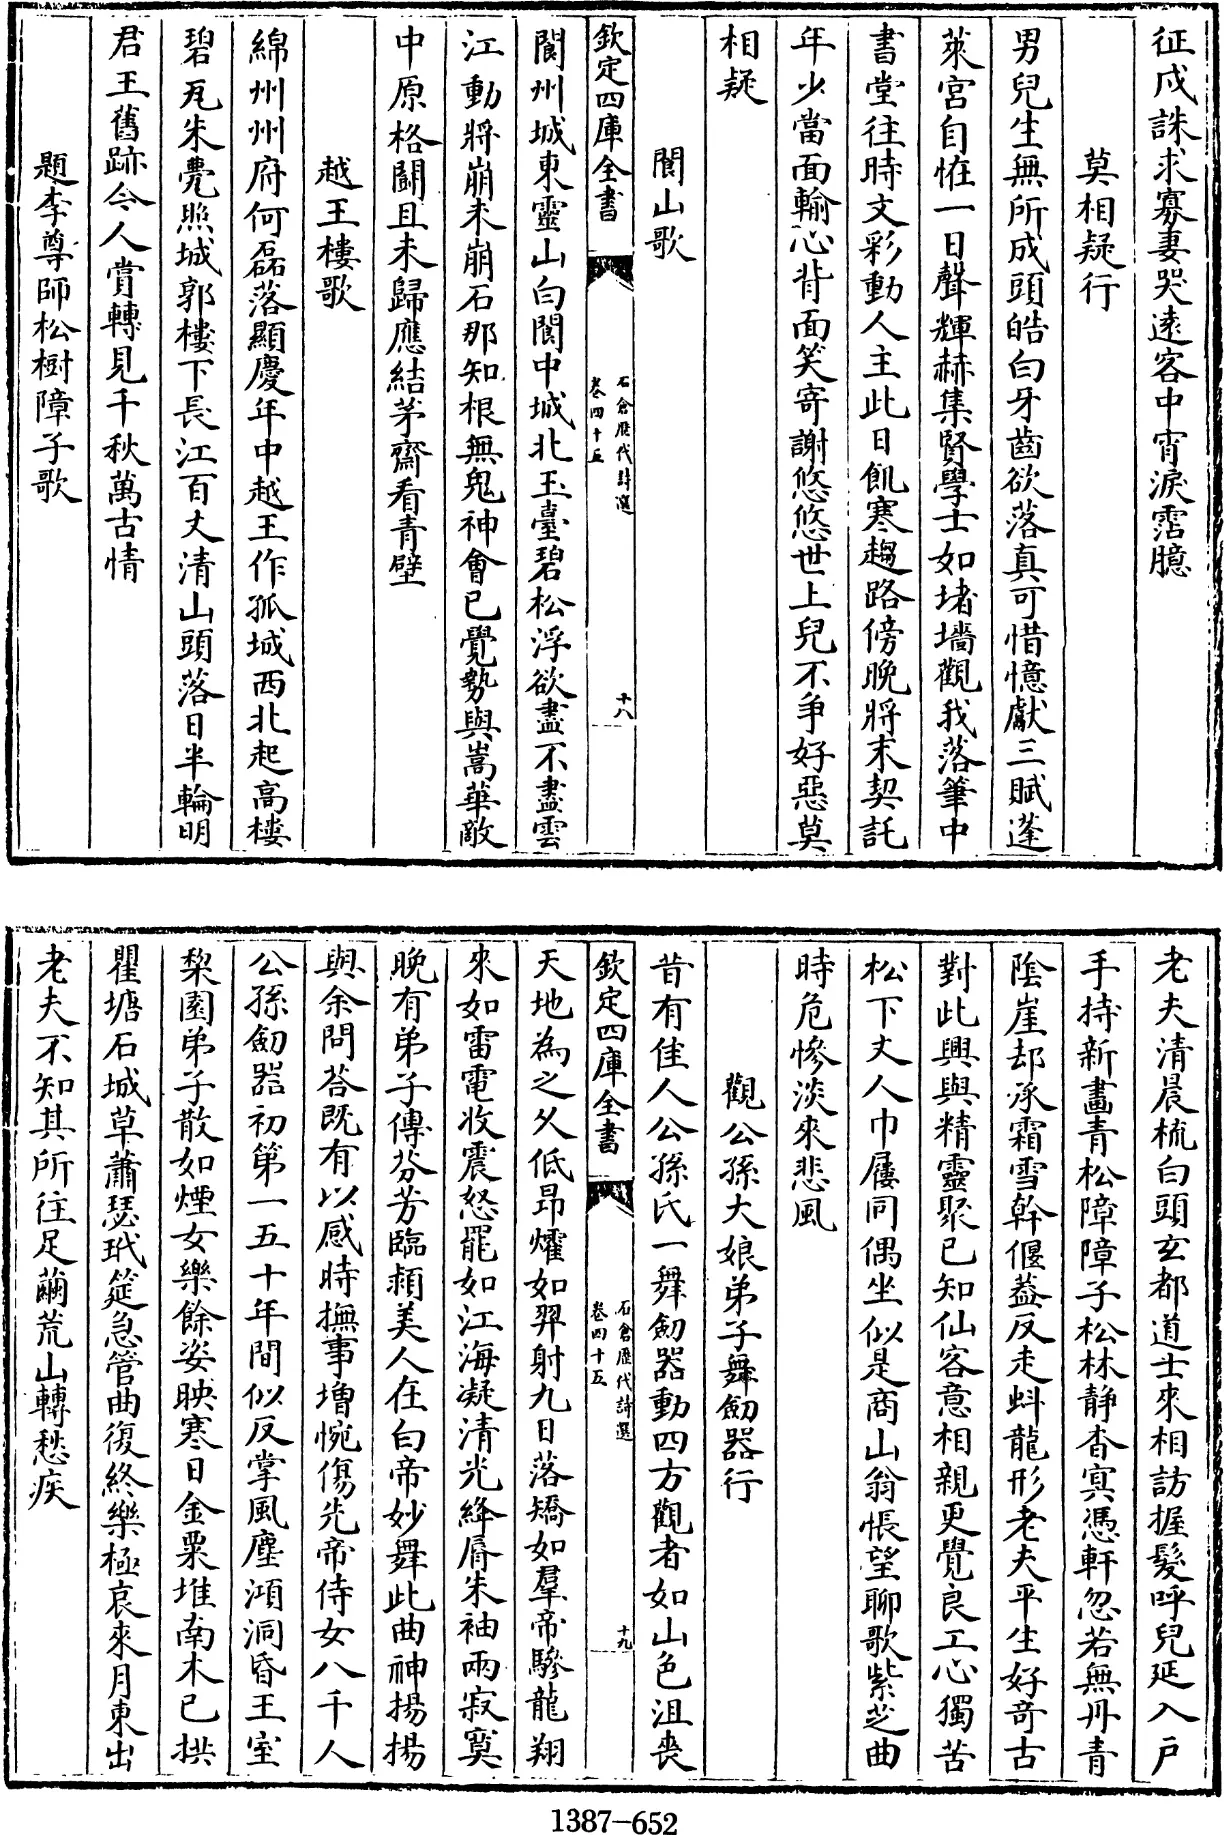 征戍誅求寡妻哭遠客中宵淚霑臆
莫相疑行
男兒生無所成頭皓白牙齒欲落真可惜憶獻三賦蓬
萊宮自恠一日聲輝赫集賢學士如堵墻觀我落筆中
書堂往時文彩動人主此日飢寒趨路傍晚將末契託
年少當面輸心背面笑寄謝悠悠世上兒不爭好惡莫
相疑
閬山歌
欽定四庫全書
石倉歷代詩選
卷四十五
十八
閬州城東靈山白閬中城北玉臺碧松浮欲盡不盡雲
江動將崩未崩石那知根無鬼神會已覺勢與嵩華敵
中原格鬭且未歸應結茅齋看青壁
越王樓歌
綿州州府何磊落顯慶年中越王作孤城西北起高樓
碧瓦朱甍照城郭樓下長江百丈清山頭落日半輪明
君王舊跡今人賞轉見千秋萬古情
題李尊師松樹障子歌
老夫清晨梳白頭玄都道士來相訪握髮呼兒延入戶
手持新畫青松障障子松林靜杳冥憑軒忽若無丹青
陰崖却承霜雪幹偃葢反走蚪龍形老夫平生好奇古
對此興與精靈聚已知仙客意相親更覺良工心獨苦
松下丈人巾屨同偶坐似是商山翁悵望聊歌紫芝曲
時危慘淡來悲風
觀公孫大娘弟子舞劒器行
昔有佳人公孫氏一舞劒器動四方觀者如山色沮喪
欽定四庫全書
石倉歷代詩選
卷四十五
十九
天地為之久低昂㸌如羿射九日落矯如羣帝驂龍翔
來如雷電收震怒罷如江海凝清光絳脣朱袖兩寂寞
晚有弟子傳芬芳臨潁美人在白帝妙舞此曲神揚揚
與余問荅既有以感時撫事增惋傷先帝侍女八千人
公孫劒器初第一五十年間似反掌風塵澒洞昏王室
棃園弟子散如煙女樂餘姿映寒日金粟堆南木已拱
瞿塘石城草蕭瑟玳筵急管曲復終樂極哀來月東出
老夫不知其所往足繭荒山轉愁疾
1387-652